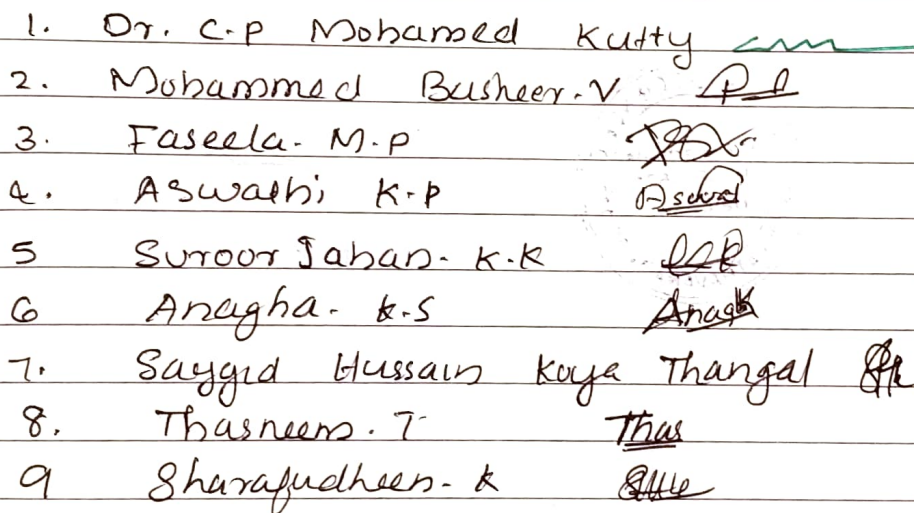 1. Dr. C.P Mohamed Kutty
2. Mohammed Basheer. V
3. Faseela. M.P
4. Aswathi K.P
5 Suroor Jahan. K.K
6 Anagha. K.S Anagh
7. Sayyid Hussain Koya Thangal
8. Thasneem. T Thas
9 Sharafudheen. K